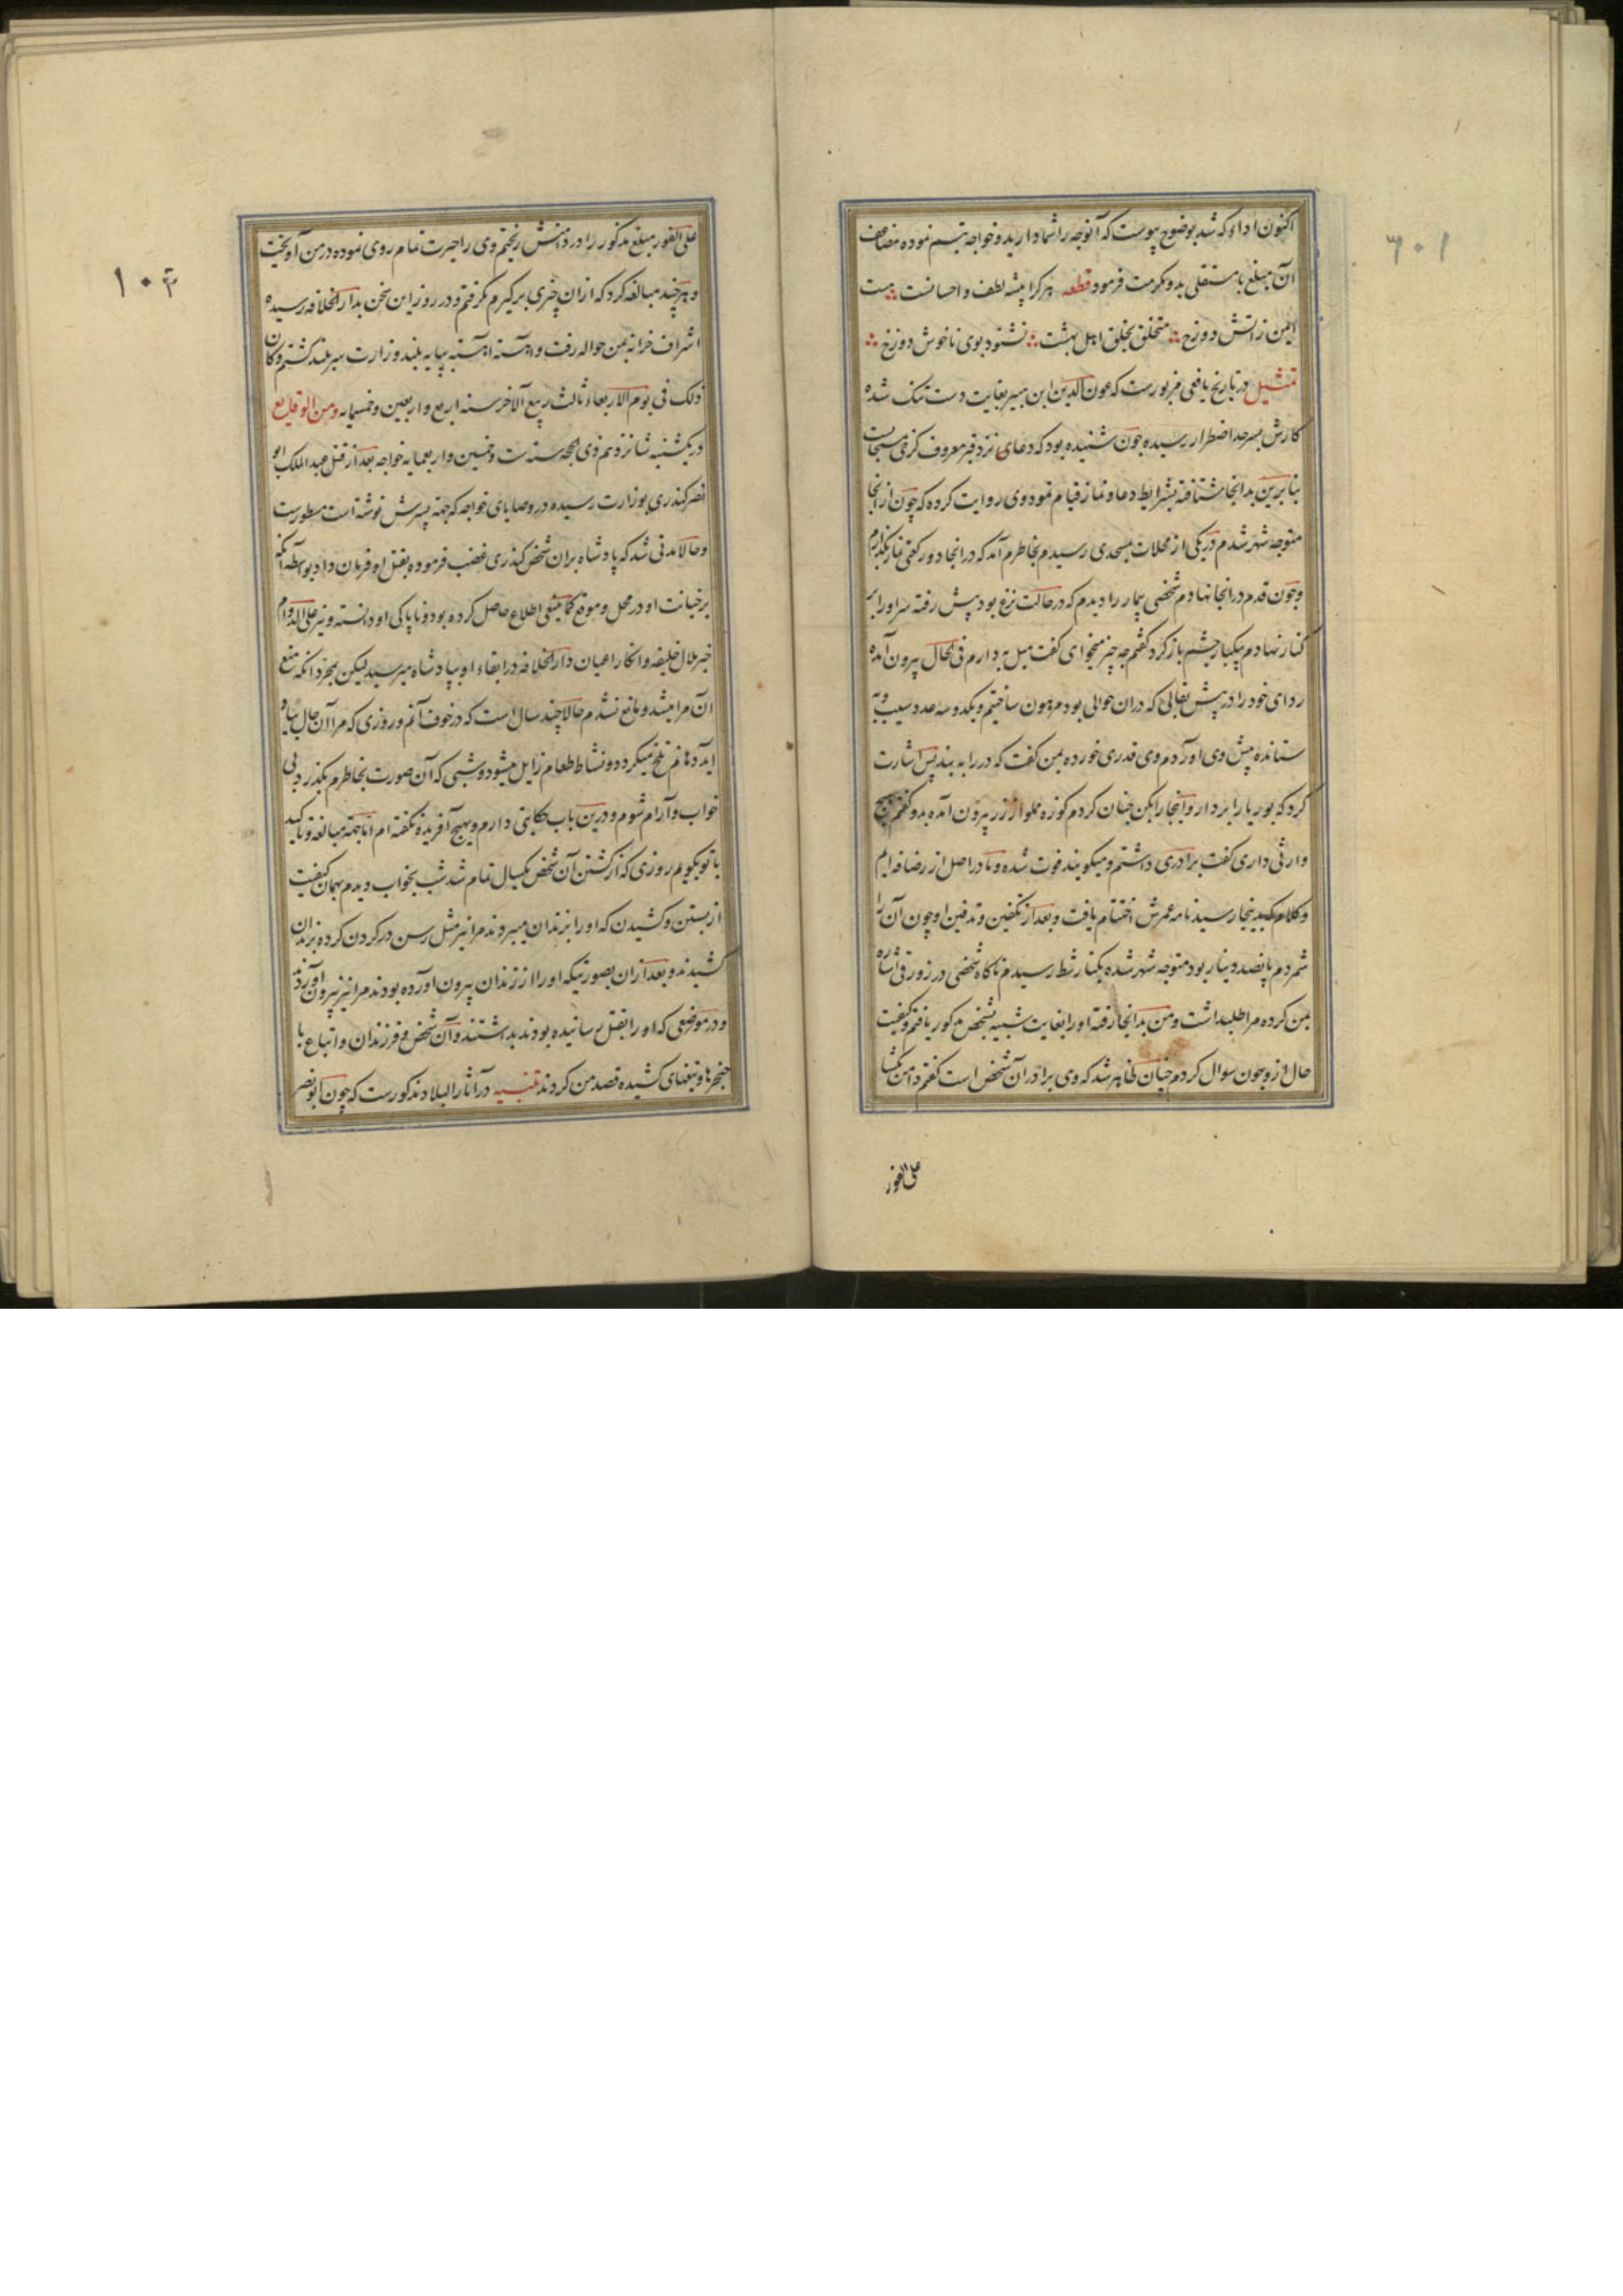 اکنون اداوکه شد بوضوح پیوست که آنوجه را شما دارید و خواجه تبسم نموده مضاعف
آن مبلغ با مستقلی بدو مکرمت فرمود قطعه هر کرا پیشه لطف و احسانست هست
ایمن ز آتش دوزخ متخلق بخلق اهل بهشت نشنود بوی ناخوش دوزخ
تمثیل در تاریخ یافعی مزبورست که عون الدین ابن هبیر بغایت دست تنک شده
کارش بسرحد اضطرار رسیده چون شنیده بود که دعای نزد قبر معروف کرخی مستجابست
بنابرین بدانجا شتافته بشرایط دعا و نماز قیام نمود وی روایت کرده که چون از انجا
متوجه شهر شدم در یکی از محلات بمسجدی رسیدم بخاطرم آمد که در انجا دو رکعتی نماز بکذارم
و چون قدم در انجا نهادم شخصی بیمار را دیدم که در حالت نزع بود پیش رفته سر او را بر
کنار نهادم یکبار چشم باز کرد کفتم چه چیز میخوای کفت میل به دارم فی الحال بیرون آمده
ردای خود را در پیش بقالی که دران حوالی بود مرهون ساختم و یکدو سه عدد سیب و به
ستانده پیش وی اوردم وی قدری خورده بمن کفت که در را به بند پس اشارت
کرد که بوریا را بردار و اینجا را بکن چنان کردم کوزه مملو از زر بیرون آمده بدو کفتم هیچ
وارثی داری کفت برادری داشتم و میکویند فوت شده و ما در اصل از رصافه ایم
و کلام که بدینجا رسید نامه عمرش اختتام یافت و بعد از تکفین و تدفین او چون آن را
شمردم پانصد دینار بود متوجه شهر شده بکنار شط رسیدم ناکاه شخصی در زورقی اشاره
بمن کرده مرا طلبید اشت و من بدانجا رفته او را بغایت شبیه بشخص مذکور یافتم و کیفیت
حال ازو چون سوال کردم چنان ظاهر شد که وی برادر آن شخص است کفتم دامن بکشا
علی الفور
علی الفور مبلغ مذکور را در دامنش ریختم وی را حیرت تمام روی نموده در من آویخت
و هر چند مبالغه کرد که ازان چیزی بر کیرم نکرفتم و در روز این سخن بدار الخلافه رسیده
اشراف خزانه بمن حواله رفت و اهسته اهسته بپایه بلند وزارت سربلند کشتم و کان
ذلک فی یوم الاربعاء ثالث ربیع آلاخر سنه اربع و اربعین و خمسمایه و من الوقایع
در یکشنبه شانزدهم ذی الحجه سنه ست و خمسین و اربعمایه خواجه بعد از قتل عبد الملک ابو
نصر کندری بوزارت رسیده در وصایای خواجه که جهته پسرش نوشته است مسطورست
و حالا مدتی شد که پادشاه بران شخص کندری غضب فرموده بقتل او فرمان داد بواسطه آنکه
بر خیانت او در محل و موقع کما ینبغی اطلاع حاصل کرده بود و ناپاکی او دانسته و نیز علی الدوام
خبر ملال خلیفه و انکار اعیان دار الخلافه در ابقاء او بپادشاه میرسید لیکن بمجرد آنکه منع
آن مرا میشد و مانع نشدم حالا چند سال است که در خوف آنم و روزی که مرا آن حال بیاد
آید دهانم تلخ میکردد و نشاط طعام زایل میشود و شبی که آن صورت بخاطرم بکذرد بی
خواب و آرام شوم و درین باب حکایتی دارم و بهیچ آفریده نکفته ام اما جهته مبالغه و تاکید
با تو بکویم روزی که از کشتن آن شخص یکسال تمام شد شب بخواب دیدم بهمان کیفیت
از بستن و کشیدن که او را بزندان میبردند مرا نیز مثل رسن در کردن کرده بزندان
کشیدند و بعد ازان بصورتیکه او را از زندان بیرون اورده بودند مرا نیز بیرون آوردند
و در موضعی که او را بقتل رسانیده بودند بداشتند و آن شخص و فرزندان و اتباع با
خنجرها و تیغهای کشیده قصد من کردند تنبیه در آثار البلاد مذکورست که چون ابو نصر